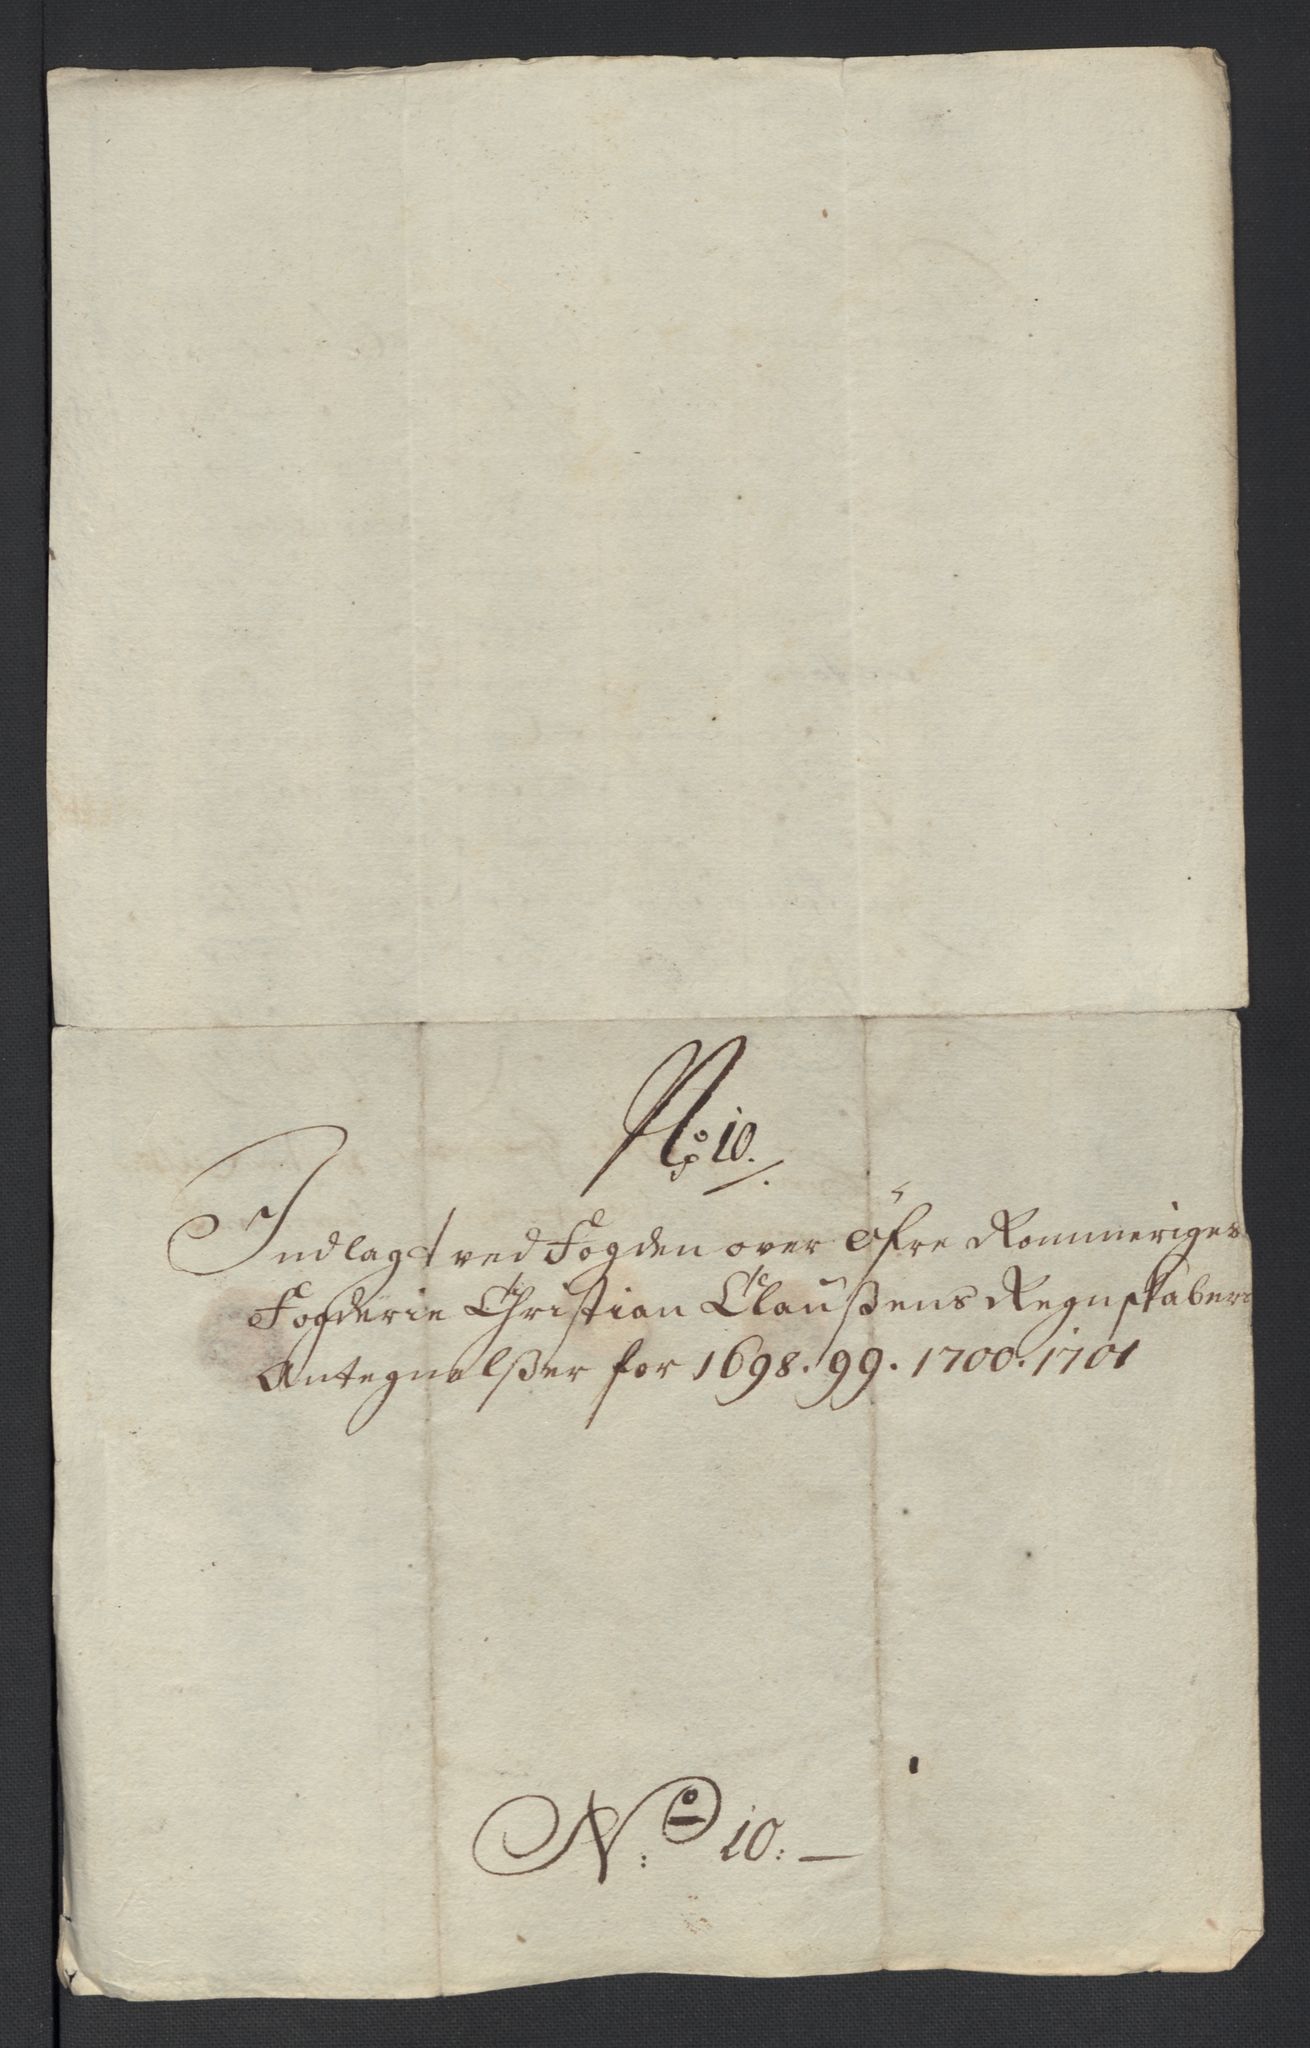 No 10.
Indlagt ved Fogden over Øfre Rommeriges
Fogderie Christian Claußens Regnskabers
Antegnelßer for 1698. 99. 1700. 1701
No: 10: —